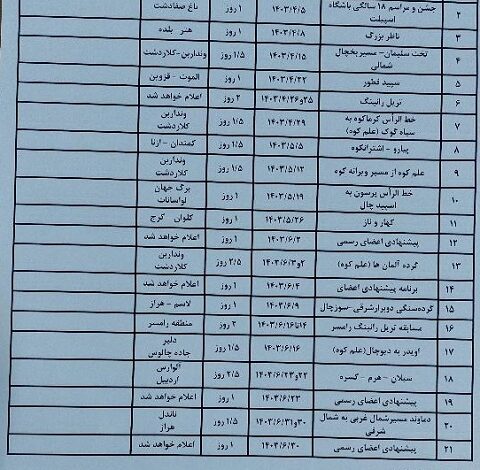 ۲ جشن و مراسم ۱۸ سالگی باشگاه اسپیلت ۱۴۰۳/۴/۵ ۱ روز باغ صفادشت
۳ ناظر بزرگ ۱۴۰۳/۴/۸ ۱ روز هنر بلده
۴ تخت سلیمان- مسیر یخچال شمالی ۱۴۰۳/۴/۱۵ ۱/۵ روز وندارین-کلاردشت
۵ سپید فطور ۱۴۰۳/۴/۲۲ ۱ روز الموت - قزوین
۶ تریل رانینگ ۲۵و۱۴۰۳/۴/۲۶ ۲ روز اعلام خواهد شد
۷ خط الرأس کرماکوه به سیاه گوک (علم کوه) ۱۴۰۳/۴/۲۹ ۱/۵ روز وندارین کلاردشت
۸ پیارو - اشترانکوه ۱۴۰۳/۵/۵ ۱/۵ روز کمندان - ازنا
۹ علم کوه از مسیر ویرانه کوه ۱۴۰۳/۵/۱۲ ۱/۵ روز وندارین کلاردشت
۱۰ خط الرأس پرسون به اسپید چال ۱۴۰۳/۵/۱۹ ۱ روز برگ جهان لواسانات
۱۱ کهار و ناز ۱۴۰۳/۵/۲۶ ۱ روز کلوان کرج
۱۲ پیشنهادی اعضای رسمی ۱۴۰۳/۶/۲ ۱ روز اعلام خواهد شد
۱۳ گرده آلمان ها (علم کوه) ۲و۱۴۰۳/۶/۳ ۲/۵ روز وندارین کلاردشت
۱۴ برنامه پیشنهادی اعضای ۱۴۰۳/۶/۴ ۱ روز اعلام خواهد شد
۱۵ گرده‌سنگی دوبرارشرقی-سوزچال ۱۴۰۳/۶/۹ ۱ روز لاسم - هراز
۱۶ مسابقه تریل رانینگ رامسر ۱۴تا۱۴۰۳/۶/۱۶ ۲ روز منطقه رامسر
۱۷ اویدر به دیوچال(علم کوه) ۱۴۰۳/۶/۱۶ ۱/۵ روز دلیر جاده چالوس
۱۸ سبلان - هرم - کسره ۲۲و۱۴۰۳/۶/۲۳ ۲/۵ روز آلوارس اردبیل
۱۹ پیشنهادی اعضای رسمی ۱۴۰۳/۶/۲۳ ۱ روز اعلام خواهد شد
۲۰ دماوند مسیرشمال غربی به شمال شرقی ۳۰و۱۴۰۳/۶/۳۱ ۱/۵ روز ناندل هراز
۲۱ پیشنهادی اعضای رسمی ۱۴۰۳/۶/۳۰ ۱ روز اعلام خواهد شد